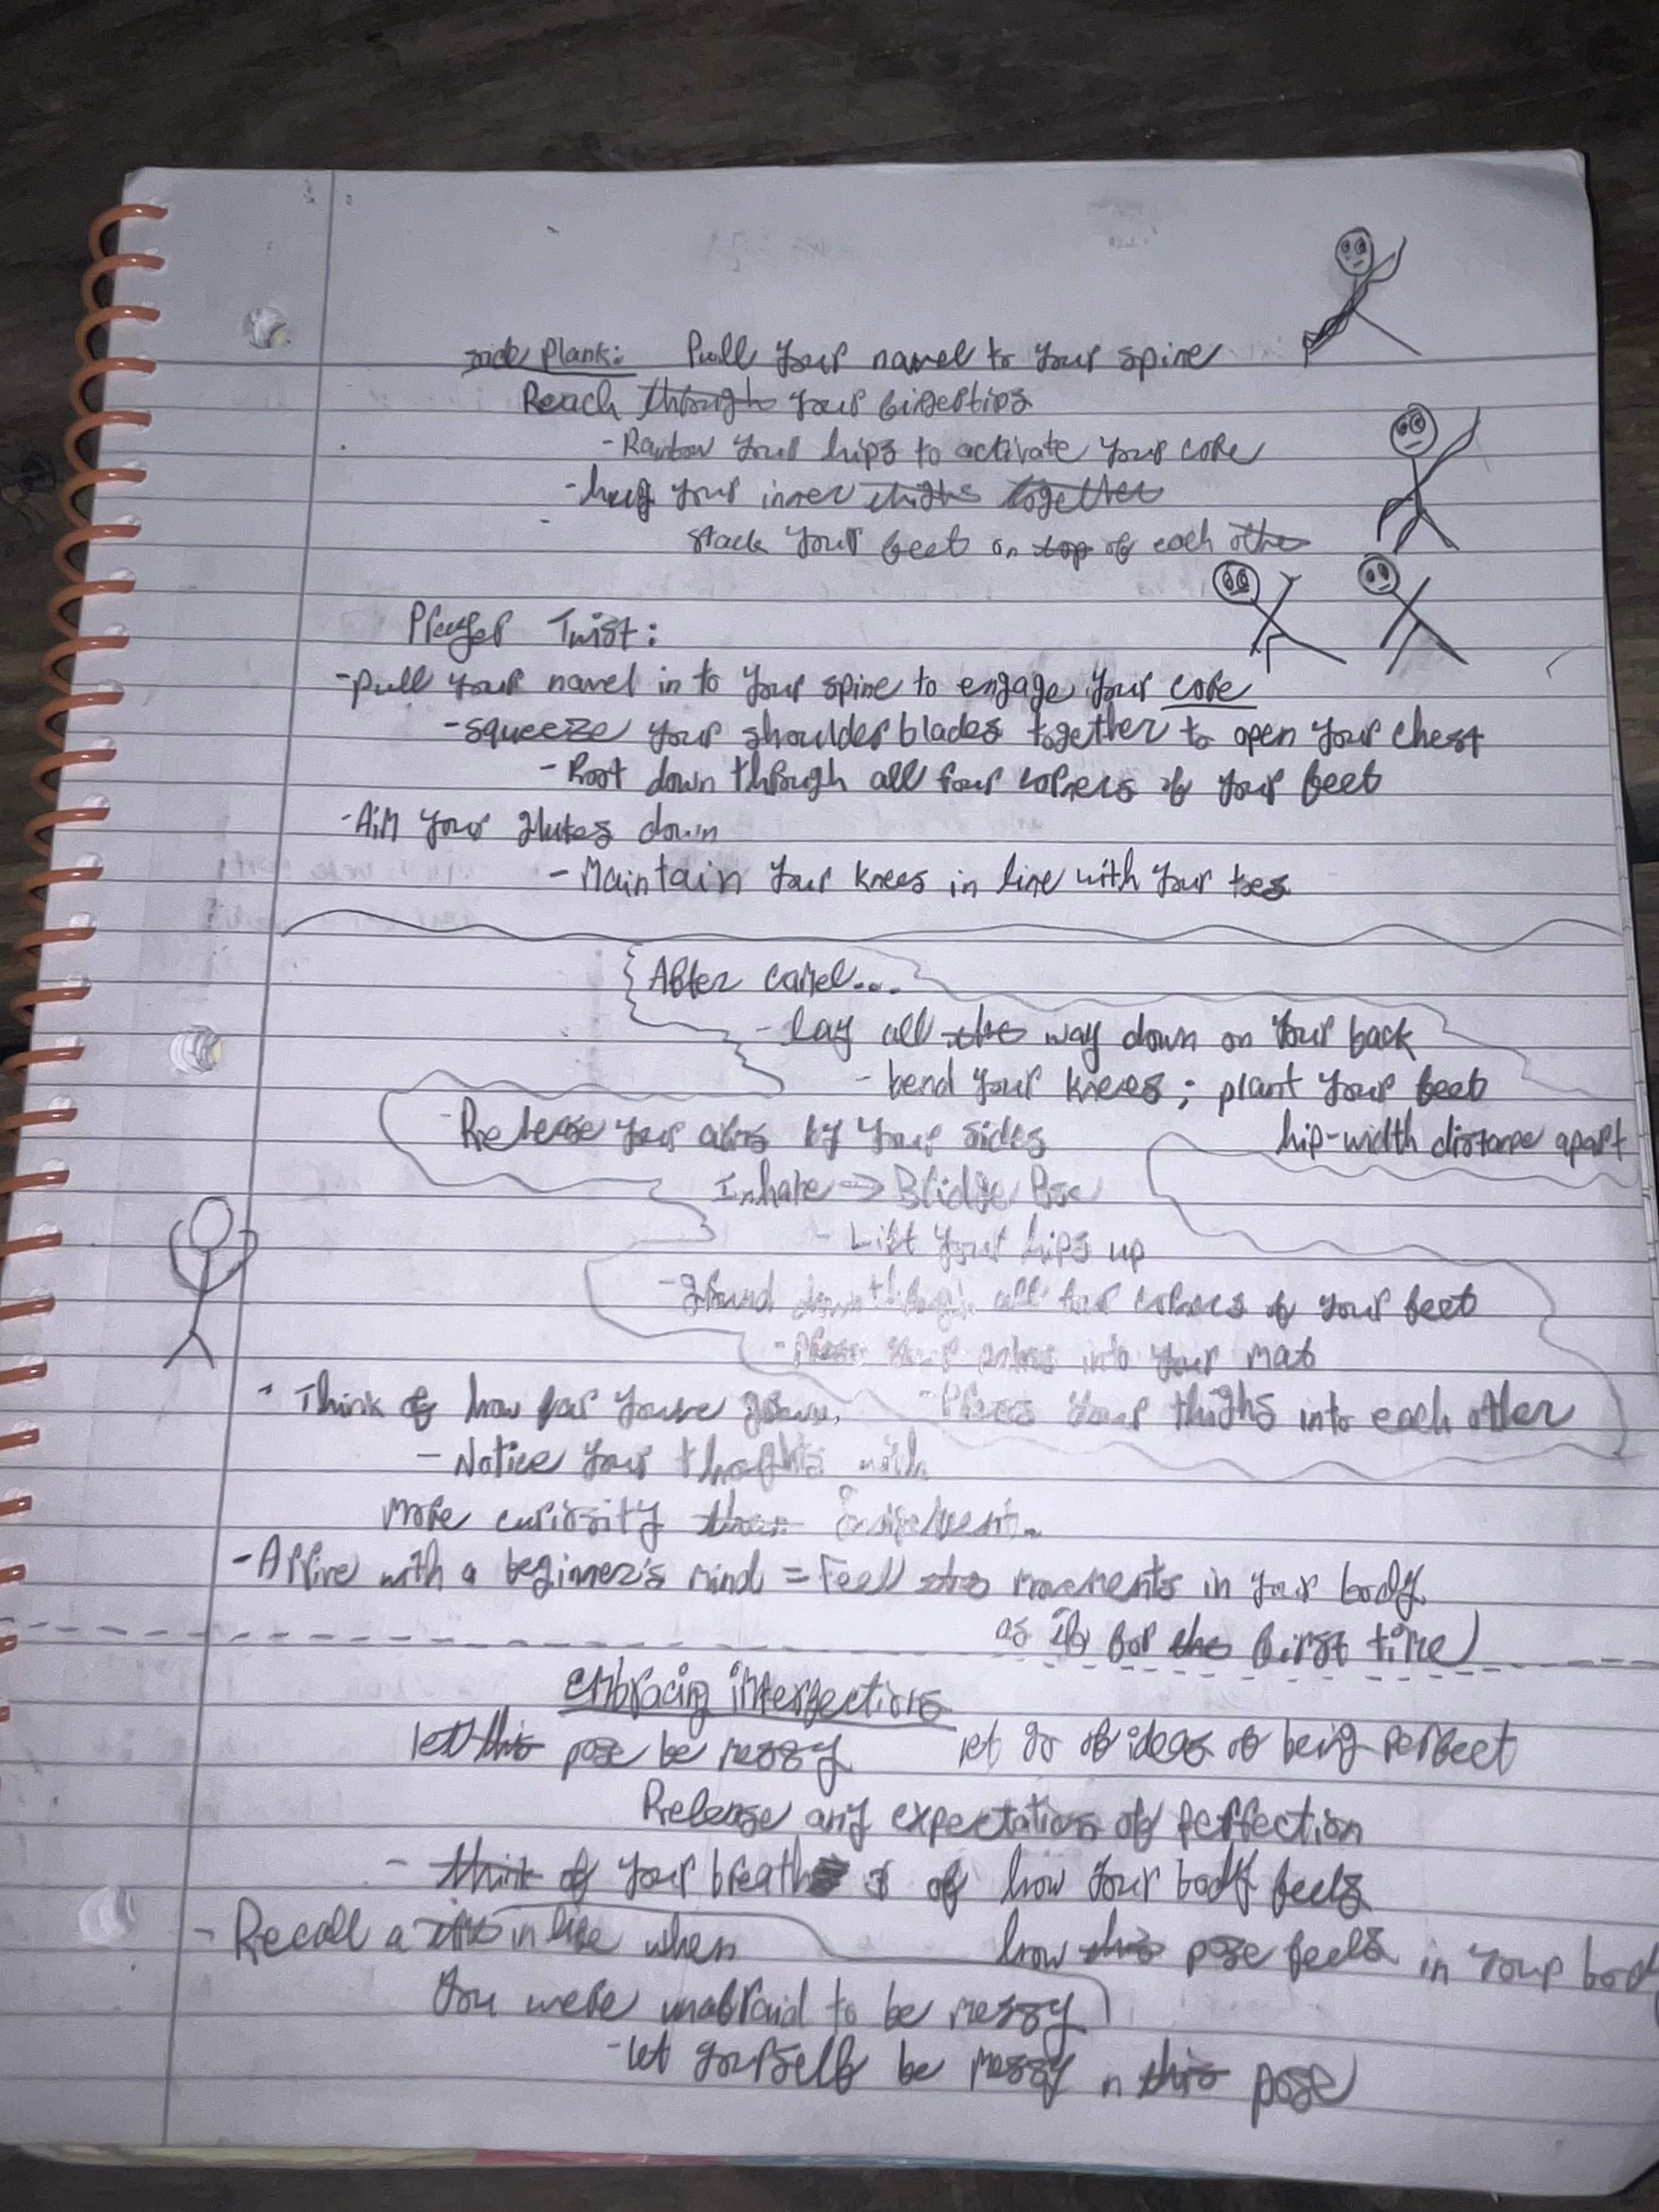 side Plank: Pull your navel to your spine
Reach through your fingertips
- Rainbow your hips to activate your core
- hug your inner thighs together
stack your feet on top of each other
Prayer Twist:
- pull your navel in to your spine to engage your core
- squeeze your shoulder blades together to open your chest
- Root down through all four corners of your feet
- Aim your glutes down
- Maintain your knees in line with your toes
After camel...
- lay all the way down on your back
- bend your knees; plant your feet
hip-width distance apart
- Release your arms by your sides
Inhale → Bridge Pose
- Lift your hips up
- Ground down through all four corners of your feet
- Press your palms into your mat
- Press your thighs into each other
- Think of how far you've grown.
- Notice your thoughts with
more curiosity than
- Arrive with a beginner's mind = Feel the movements in your body
as if for the first time)
Embracing imperfections
let this pose be messy let go of ideas of being perfect
Release any expectations of perfection
- think of your breath & of how your body feels
how this pose feels in your body
- Recall a time in life when
you were unafraid to be messy
- let yourself be messy in this pose